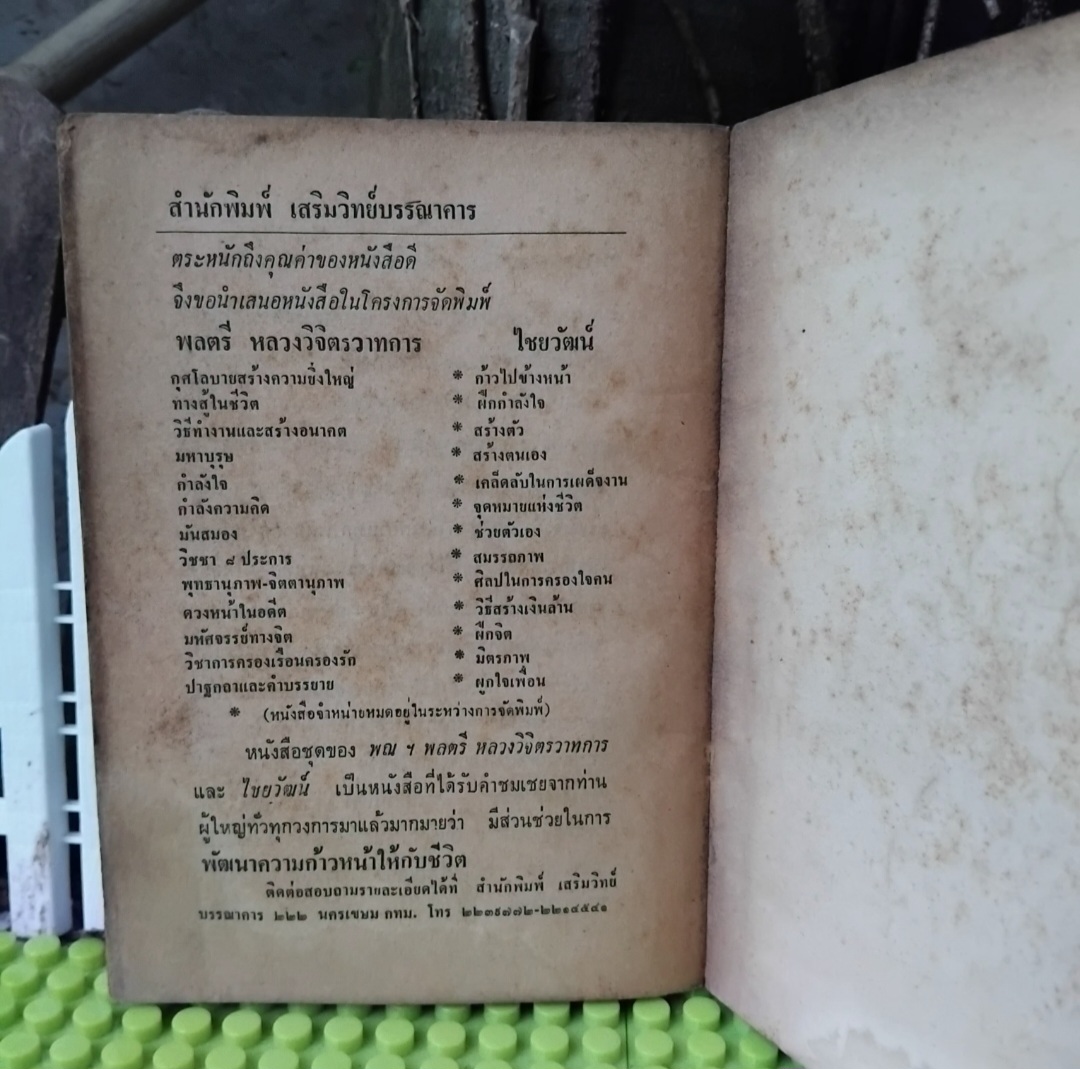 สำนักพิมพ์ เสริมวิทย์บรรณาคาร
ตระหนักถึงคุณค่าของหนังสือดี
จึงขอนำเสนอหนังสือในโครงการจัดพิมพ์
พลตรี หลวงวิจิตรวาทการ ไชยวัฒน์
กุศโลบายสร้างความยิ่งใหญ่ * ก้าวไปข้างหน้า
ทางสู้ในชีวิต * ฝึกกำลังใจ
วิธีทำงานและสร้างอนาคต * สร้างตัว
มหาบุรุษ * สร้างตนเอง
กำลังใจ * เคล็ดลับในการเผด็จงาน
กำลังความคิด * จุดหมายแห่งชีวิต
มันสมอง * ช่วยตัวเอง
วิชชา ๘ ประการ * สมรรถภาพ
พุทธานุภาพ-จิตตานุภาพ * ศิลปในการครองใจคน
ดวงหน้าในอดีต * วิธีสร้างเงินล้าน
มหัศจรรย์ทางจิต * ฝึกจิต
วิชาการครองเรือนครองรัก * มิตรภาพ
ปาฐกถาและคำบรรยาย * ผูกใจเพื่อน
* (หนังสือจำหน่ายหมดอยู่ในระหว่างการจัดพิมพ์)
หนังสือชุดของ พณ ฯ พลตรี หลวงวิจิตรวาทการ
และ ไชยวัฒน์ เป็นหนังสือที่ได้รับคำชมเชยจากท่าน
ผู้ใหญ่ทั่วทุกวงการมาแล้วมากมายว่า มีส่วนช่วยในการ
พัฒนาความก้าวหน้าให้กับชีวิต
ติดต่อสอบถามรายละเอียดได้ที่ สำนักพิมพ์ เสริมวิทย์
บรรณาคาร ๒๒๒ นครเขษม กทม. โทร ๒๒๓๙๗๗๒-๒๒๑๔๕๔๑